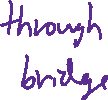 through
bridge